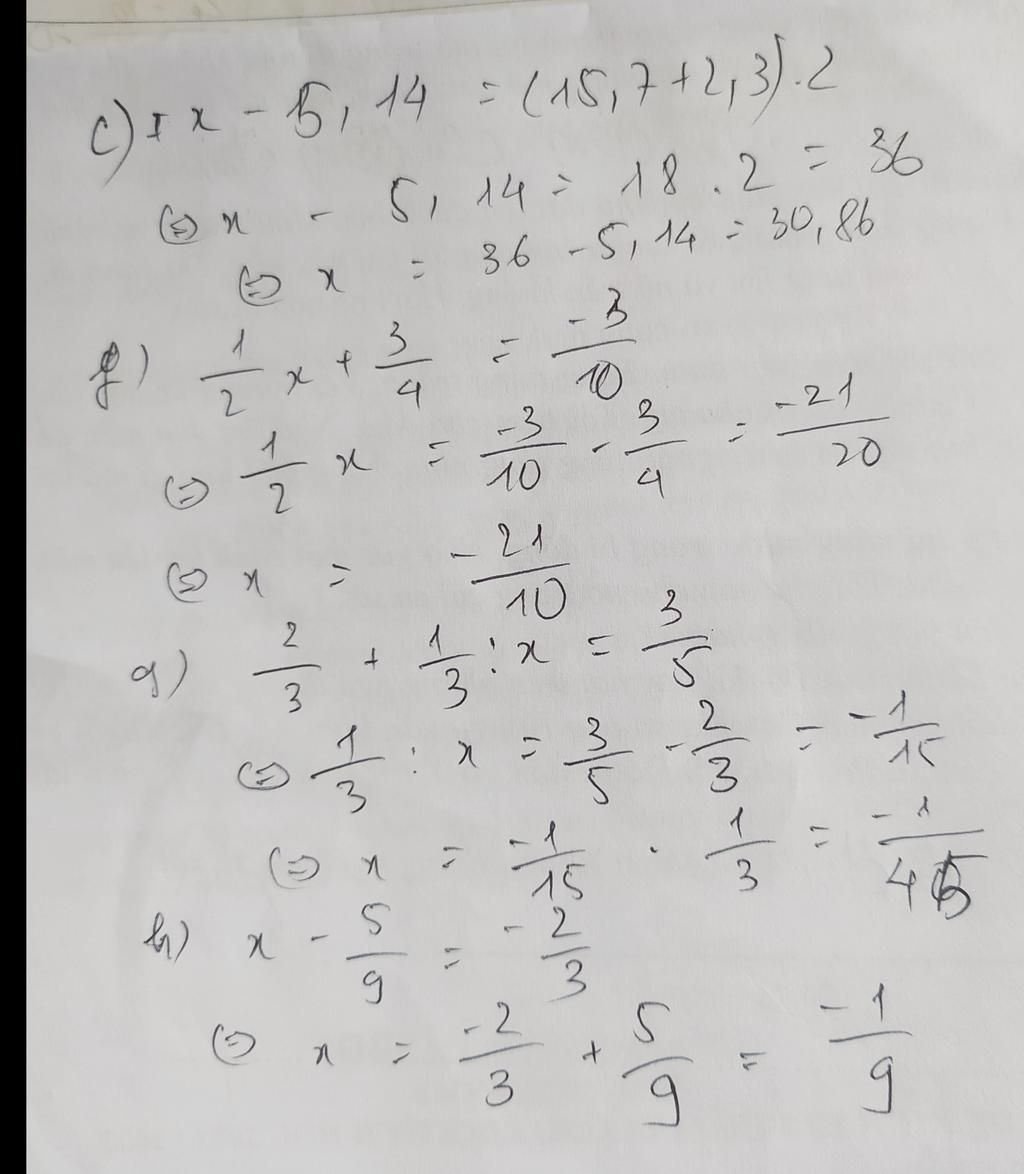 c) x - 5,14 = (15,7+2,3).2
⇔ x - 5,14 = 18.2 = 36
⇔ x = 36 - 5,14 = 30,86
f) 1/2 x + 3/4 = -3/10
⇔ 1/2 x = -3/10 - 3/4 = -21/20
⇔ x = -21/10
g) 2/3 + 1/3 : x = 3/5
⇔ 1/3 : x = 3/5 - 2/3 = -1/15
⇔ x = -1/15 . 1/3 = -1/45
h) x - 5/9 = -2/3
⇔ x = -2/3 + 5/9 = -1/9